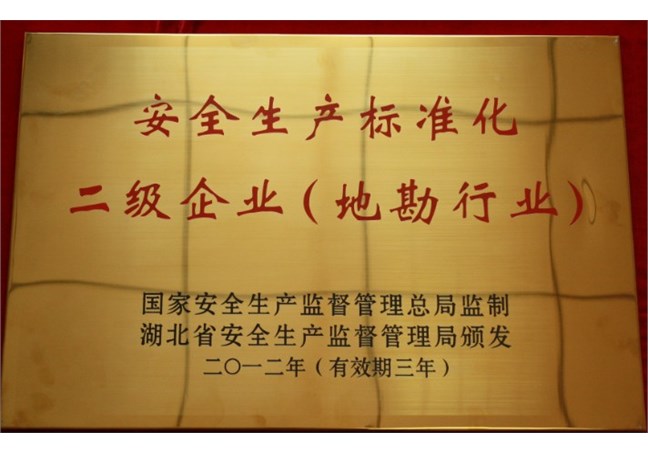 安全生产标准化
二级企业（地勘行业）
国家安全生产监督管理总局监制
湖北省安全生产监督管理局颁发
二〇一二年（有效期三年）